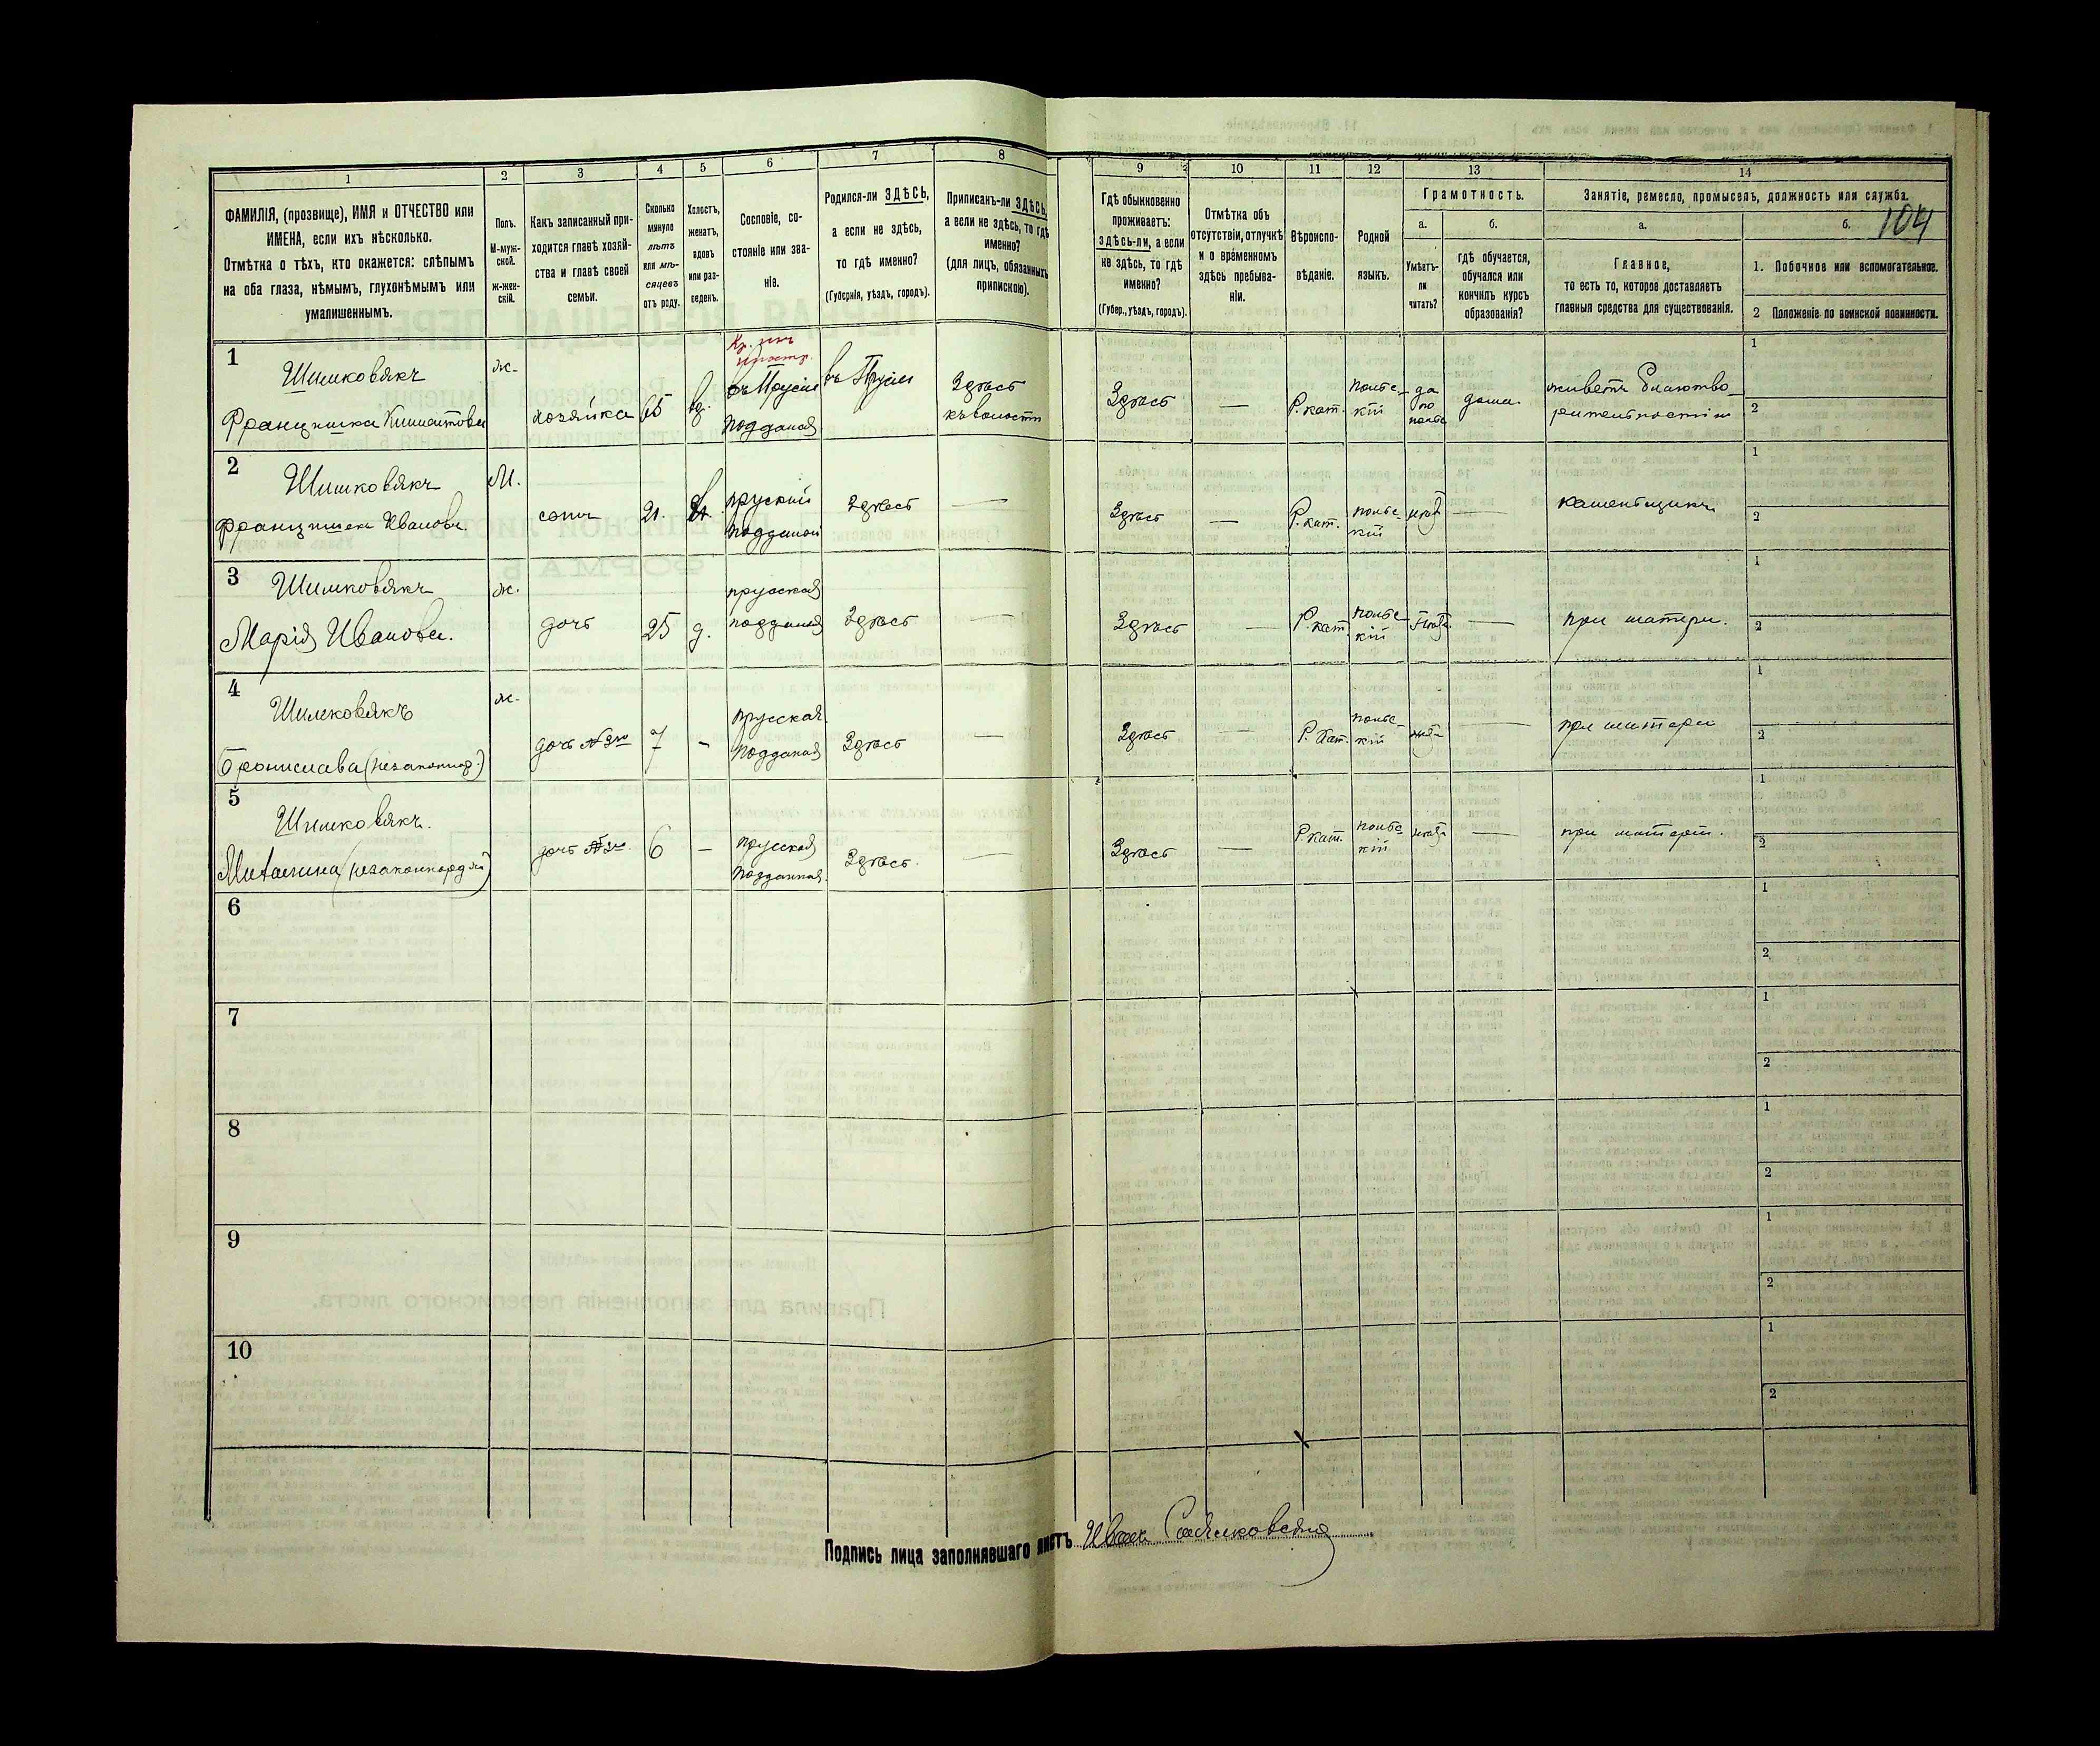 1
2
3
4
5
6
7
8
9
10
11
12
13
14
ФАМИЛІЯ, (прозвище), ИМЯ и ОТЧЕСТВО или
ИМЕНА, если ихъ нѣсколько.
Отмѣтка о тѣхъ, кто окажется: слѣпымъ
на оба глаза, нѣмымъ, глухонѣмымъ или
умалишеннымъ.
Полъ.
М-муж-
ской.
Ж-жен-
скій.
Какъ записанный при-
ходится главѣ хозяй-
ства и главѣ своей
семьи.
Сколько
минуло
лѣтъ
или мѣ-
сяцевъ
отъ роду.
Холостъ,
женатъ,
вдовъ
или раз-
веденъ.
Сословіе, со-
стояніе или зва-
ніе.
Родился-ли ЗДѢСЬ,
а если не здѣсь,
то гдѣ именно?
(Губернія, уѣздъ, городъ).
Приписанъ-ли ЗДѢСЬ,
а если не здѣсь, то гдѣ
именно?
(для лицъ, обязанныхъ
припискою).
Гдѣ обыкновенно
проживаетъ:
здѣсь-ли, а если
не здѣсь, то гдѣ
именно?
(Губер., уѣздъ, городъ).
Отмѣтка объ
отсутствіи, отлучкѣ
и о временномъ
здѣсь пребыва-
ніи.
Вѣроиспо-
вѣданіе.
Родной
языкъ.
Грамотность.
а.
Умѣетъ-
ли
читать?
б.
гдѣ обучается,
обучался или
кончилъ курсъ
образованія?
Занятіе, ремесло, промыселъ, должность или служба.
а.
Главное,
то есть то, которое доставляетъ
главныя средства для существованія.
б.
104
1. Побочное или вспомогательное.
2 Положеніе по воинской повинности.
1
Шимковякъ
Францишка
ж.
хозяйка
65
вд.
въ Прусіи
подданая
въ Прусіи
Здѣсь
къ волости
Здѣсь
—
Р. кат.
польс-
кій
да
по
польс
дома.
живетъ благотво-
рительностію
1
2
2
Шимковякъ
Францишек Иванович
М.
сынъ
21.
пруский
подданой
Здѣсь
—
Здѣсь
—
Р. кат.
польс-
кій
нѣтъ
—
каменьщикъ
1
2
3
Шимковякъ
Марія Иванова.
ж.
дочь
25
д.
прусская
подданая
Здѣсь
—
Здѣсь
—
Р. кат.
польс-
кій
нѣтъ.
—
при матери.
1
2
4
Шимковякъ
Бронислава (незаконнор.)
ж.
дочь №3го
7
-
прусская
подданая
Здѣсь
—
Здѣсь
—
Р. кат.
польс-
кій
нѣтъ
—
при матери
1
2
5
Шимковякъ.
(незаконнорд.
дочь №3го.
6
—
прусская
подданная.
Здѣсь.
—
Здѣсь
—
Р. кат.
польс-
кій
нѣтъ
—
при матери.
1
2
6
1
2
7
1
2
8
1
2
9
1
2
10
1
2
Подпись лица заполнявшаго листъ Иван